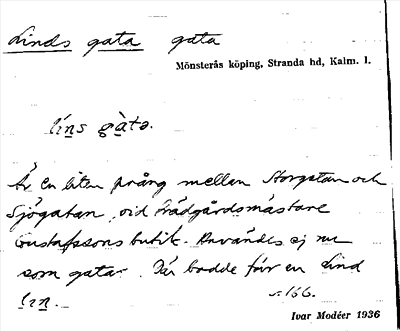 Linds gata gata
Mönsterås köping, Stranda hd, Kalm. l.
líns gàtə.
Är en liten prång mellan Storgatan och
Sjögatan, vid trädgårdsmästare
Gustafssons butik. Användes ej nu
som gata. Där bodde förr en Lind
lın. s. 166.
Ivar Modéer 1936